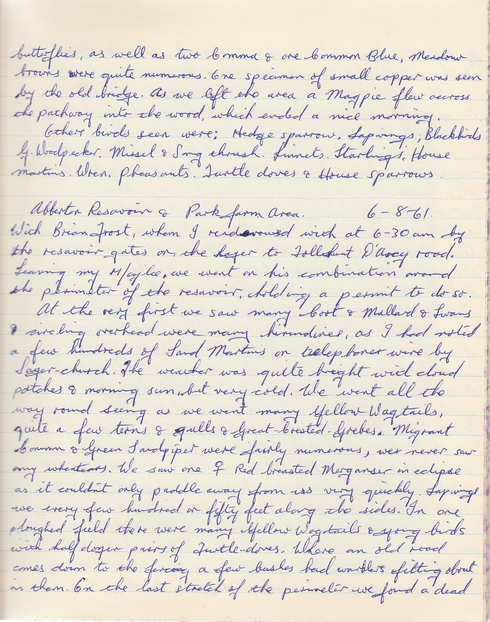 butterflies, as well as two Comma & one Common Blue, Meadow
browns were quite numerous. One specimen of small copper was seen
by the old bridge. As we left the area a Magpie flew across
the pathway into the wood, which ended a nice morning.
Other birds seen were; Hedge sparrow, Lapwings, Blackbirds
G. Woodpecker, Missel & Song thrush. Linnets. Starlings, House
martins. Wren. Pheasants. Turtle doves & House sparrows.
Abberton Resavoir & Park farm Area. 6-8-61.
With Brian Frost, whom I with at 6-30am by
the resavoir gates on the Layer to Tolleshunt D'Arcy road.
Leaving my M/cycle, we went on his combination around
the perimeter of the resavoir, holding a permit to do so.
At the very first we saw many Coot & Mallard & Swans
circling overhead were many hirundines, as I had noted
a few hundreds of Sand Martins on telephone wire by
Layer-church. The weather was quite bright with cloud
patches & morning sun, but very cold. We went all the
way round seeing as we went many Yellow Wagtails,
quite a few terns & gulls & Great Crested Grebes. Migrant
Common & Green Sandpiper were fairly numerous, we never saw
any . We saw one ♀ Red breasted Merganser in eclipse
as it couldnt only paddle away from us very quickly. Lapwings
we every few hundred or fifty feet along the sides. In one
ploughed field there were many Yellow Wagtails & young birds
with half dozen pairs of Turtle-doves. Where an old road
comes down to the a few bushes had warblers flitting about
in them. On the last stretch of the perimeter we found a dead